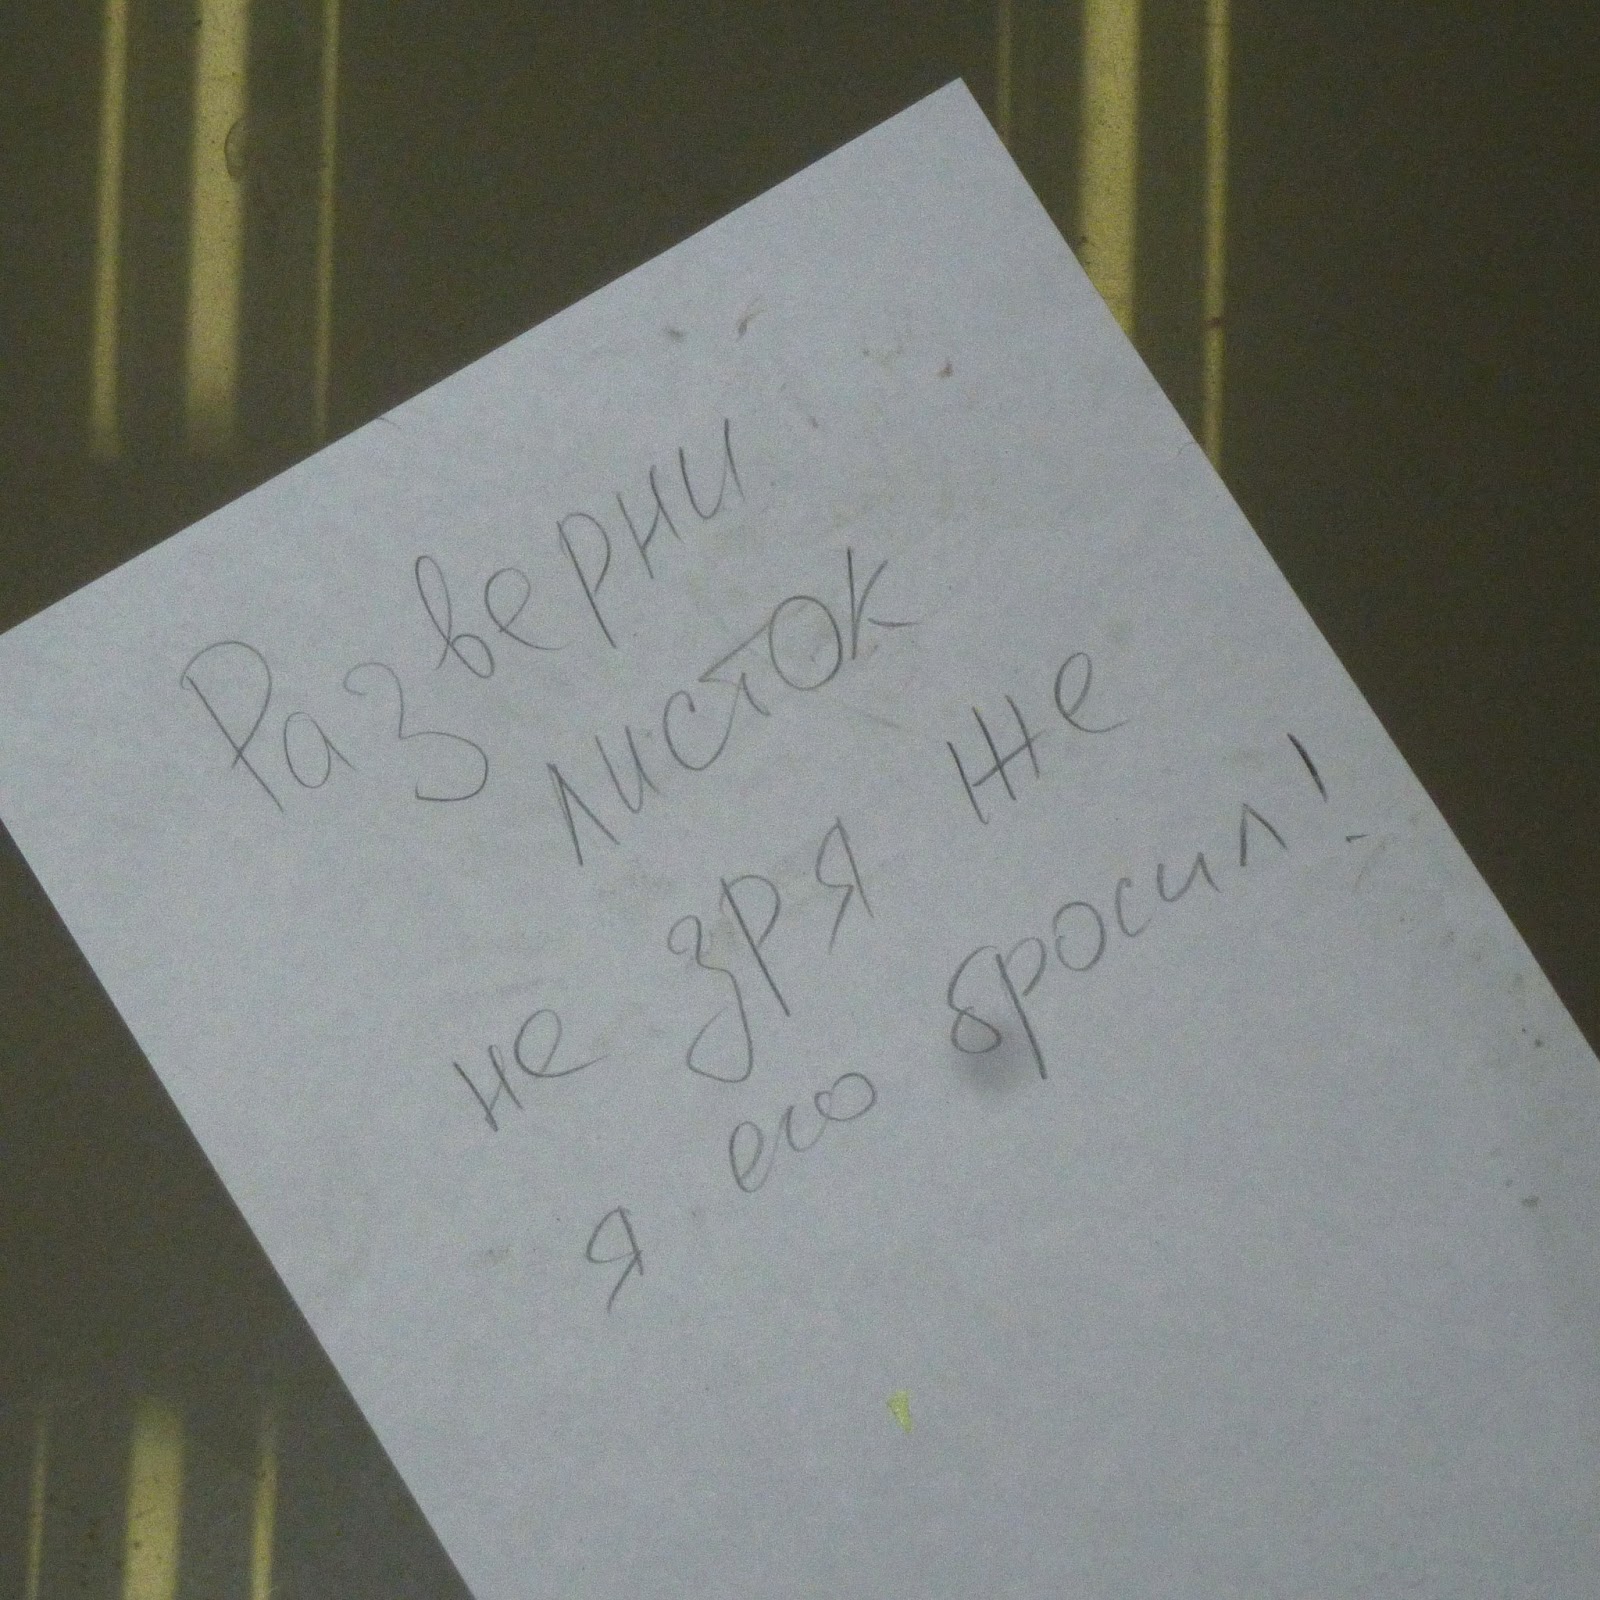 Разверни
листок
не зря же
я его бросил!